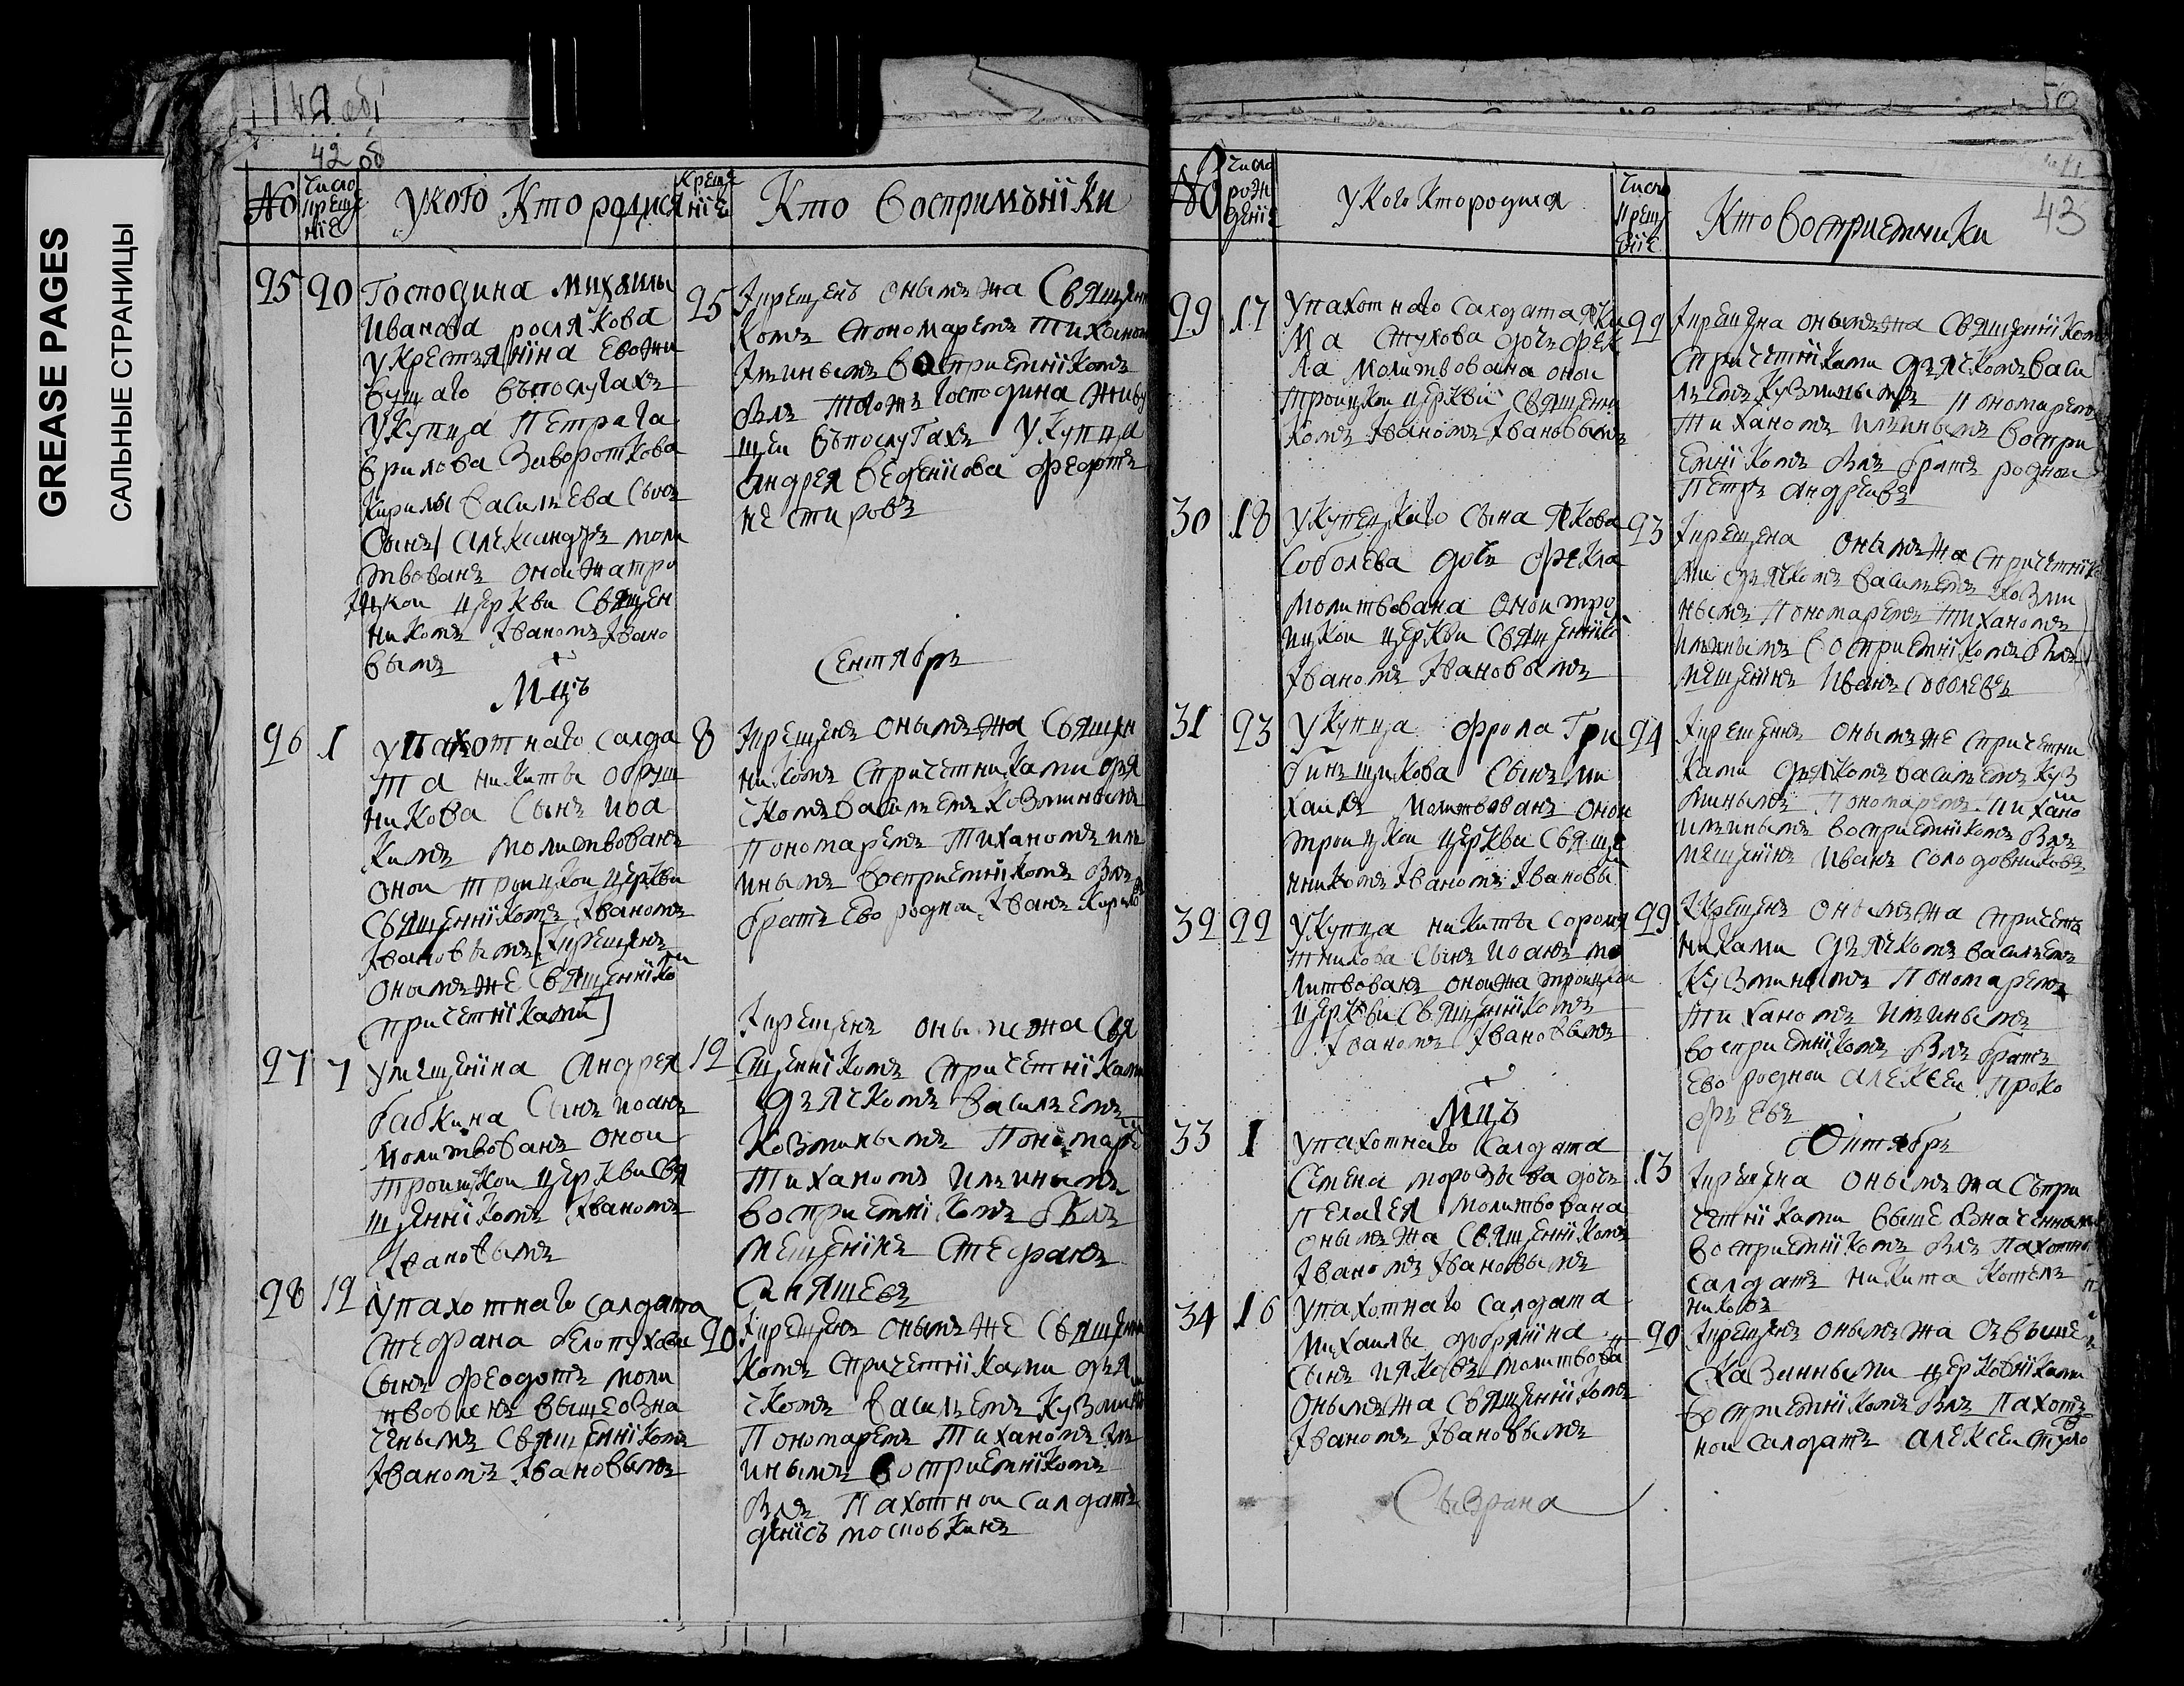 GREASE PAGES
САЛЬНЫЕ СТРАНИЦЫ
42 об
42 об
No
число
крещеніе
У кого Кто родися
Крещ
ніе
Кто воспримъніки
25
20
Господина Михаилы
Иванова рослякова
у крестьянина ево жи
вущаго въпослугахъ
у купца Петра га
врилова Завороткова
Кирилы василъева сынъ
Сынъ Александръ моли
твованъ оной жа тро
ицкои церкви Священ
никомъ Iваномъ Iвано
вымъ
25
Iкрещенъ онымъ жа Священ
комъ спономаремъ Тиханом
Iлинымъ воспріемнікомъ
былъ тогожъ господина живу
щеи въпослугахъ у купца
Андрея веденісова феоктъ
нестировъ
Мцъ
Сентябрь
26
1
у пахотнаго салда
та никиты обрущ
никова Сынъ иоа
кимъ молитвованъ
онои троицкои церкви
Священнікомъ Iваномъ
Iвановымъ [Iкрещенъ
онымъ же Священніко
спричетніками]
8
Iкрещенъ онымъ жа Священ
никомъ спричетниками дья
чкомъ василъемъ Козминымъ
пономаремъ Тиханомъ ил
инымъ воспріемнікомъ былъ
братъ ево роднои Iванъ
27
7
у мещеніна Андрея
бабкина Сынъ иоанъ
молитвованъ онои
троицкои церкви Свя
щеннікомъ Iваномъ
Iвановымъ
12
Iкрещенъ онымъ жа Свя
щеннікомъ спричетніками
дьячкомъ василъемъ
Козминымъ Пономаре
Тиханомъ илинымъ
воспріемнікомъ былъ
мещенінъ стефанъ
Синящевъ
28
12
у пахотнаго салдата
стефана белопухова
Сынъ феодотъ моли
твованъ вышеозна
ченымъ Священнікомъ
Iваномъ Iвановымъ
20
Iкрещенъ онымъ же Священ
комъ спричетніками дья
чкомъ василъемъ Кузмин
Пономаремъ Тиханомъ Iл
инымъ воспріемнікомъ
былъ Пахотнои салдатъ
денісъ московкинъ
50
43
No
число
рожденіе
у кого кто родися
число
крещ
еніе
Кто воспріемники
29
17
у пахотнаго салдата яки
ма стукова дочь фек
ла молитвована онои
троицкои церкви Священни
комъ Iваномъ Iвановымъ
22
Iкрещена онымъ жа Священніком
спричетніками дьячкомъ васи
лъемъ Кузминымъ пономарем
Тиханомъ илинымъ воспри
емнікомъ былъ братъ роднои
Петръ Андреивъ
30
18
у купецкаго сына якова
Соболева дочь фекла
молитвована онои тро
ицкои церкви Священніко
Iваномъ Iвановымъ
23
Iкрещена онымъ жа спричетніка
ми дьячкомъ василъемъ Козми
нымъ Пономаремъ Тиханомъ
илинымъ воспріемнікомъ былъ
мещенінъ Иванъ Соболевъ
31
23
у купца фрола Гри
бинщикова Сынъ ми
хаилъ молитвованъ онои
троицкои церкви Свяще
нникомъ Iваномъ Iвановы
24
Iкрещенъ онымъ же спричетни
ками дьячкомъ василъемъ Куз
минымъ Пономаремъ тихано
илинымъ воспріемнікомъ былъ
мещенінъ Иванъ Солодовниковъ
32
22
у купца никиты сороми
тникова Сынъ иоанъ мо
литвованъ онои жа троицкои
церкви Священнікомъ
Iваномъ Iвановымъ
29
Iкрещенъ онымъ жа спричет
никами дьячкомъ василъемъ
Кузминымъ Пономаремъ
Тиханомъ илинымъ
воспріемнікомъ былъ братъ
ево роднои Алексеи Проко
фьевъ
Мцъ
Октябрь
33
1
у пахотнаго салдата
Семена морозова дочь
пелагея молитвована
онымъ жа Священнікомъ
Iваномъ Iвановымъ
13
Iкрещена онымъ жа съпри
четніками вышеозначенными
воспріемнікомъ былъ пахотно
салдатъ Никита Котель
никовъ
34
16
у пахотнаго салдата
Михаилы добрыніна
Сынъ ияковъ молитвова
онымъ жа Священнікомъ
Iваномъ Iвановымъ
20
Iкрещенъ онымъ жа съвыше
сказанными церковніками
воспріемнікомъ былъ пахот
нои салдатъ Алексеи стуко
Сызрана